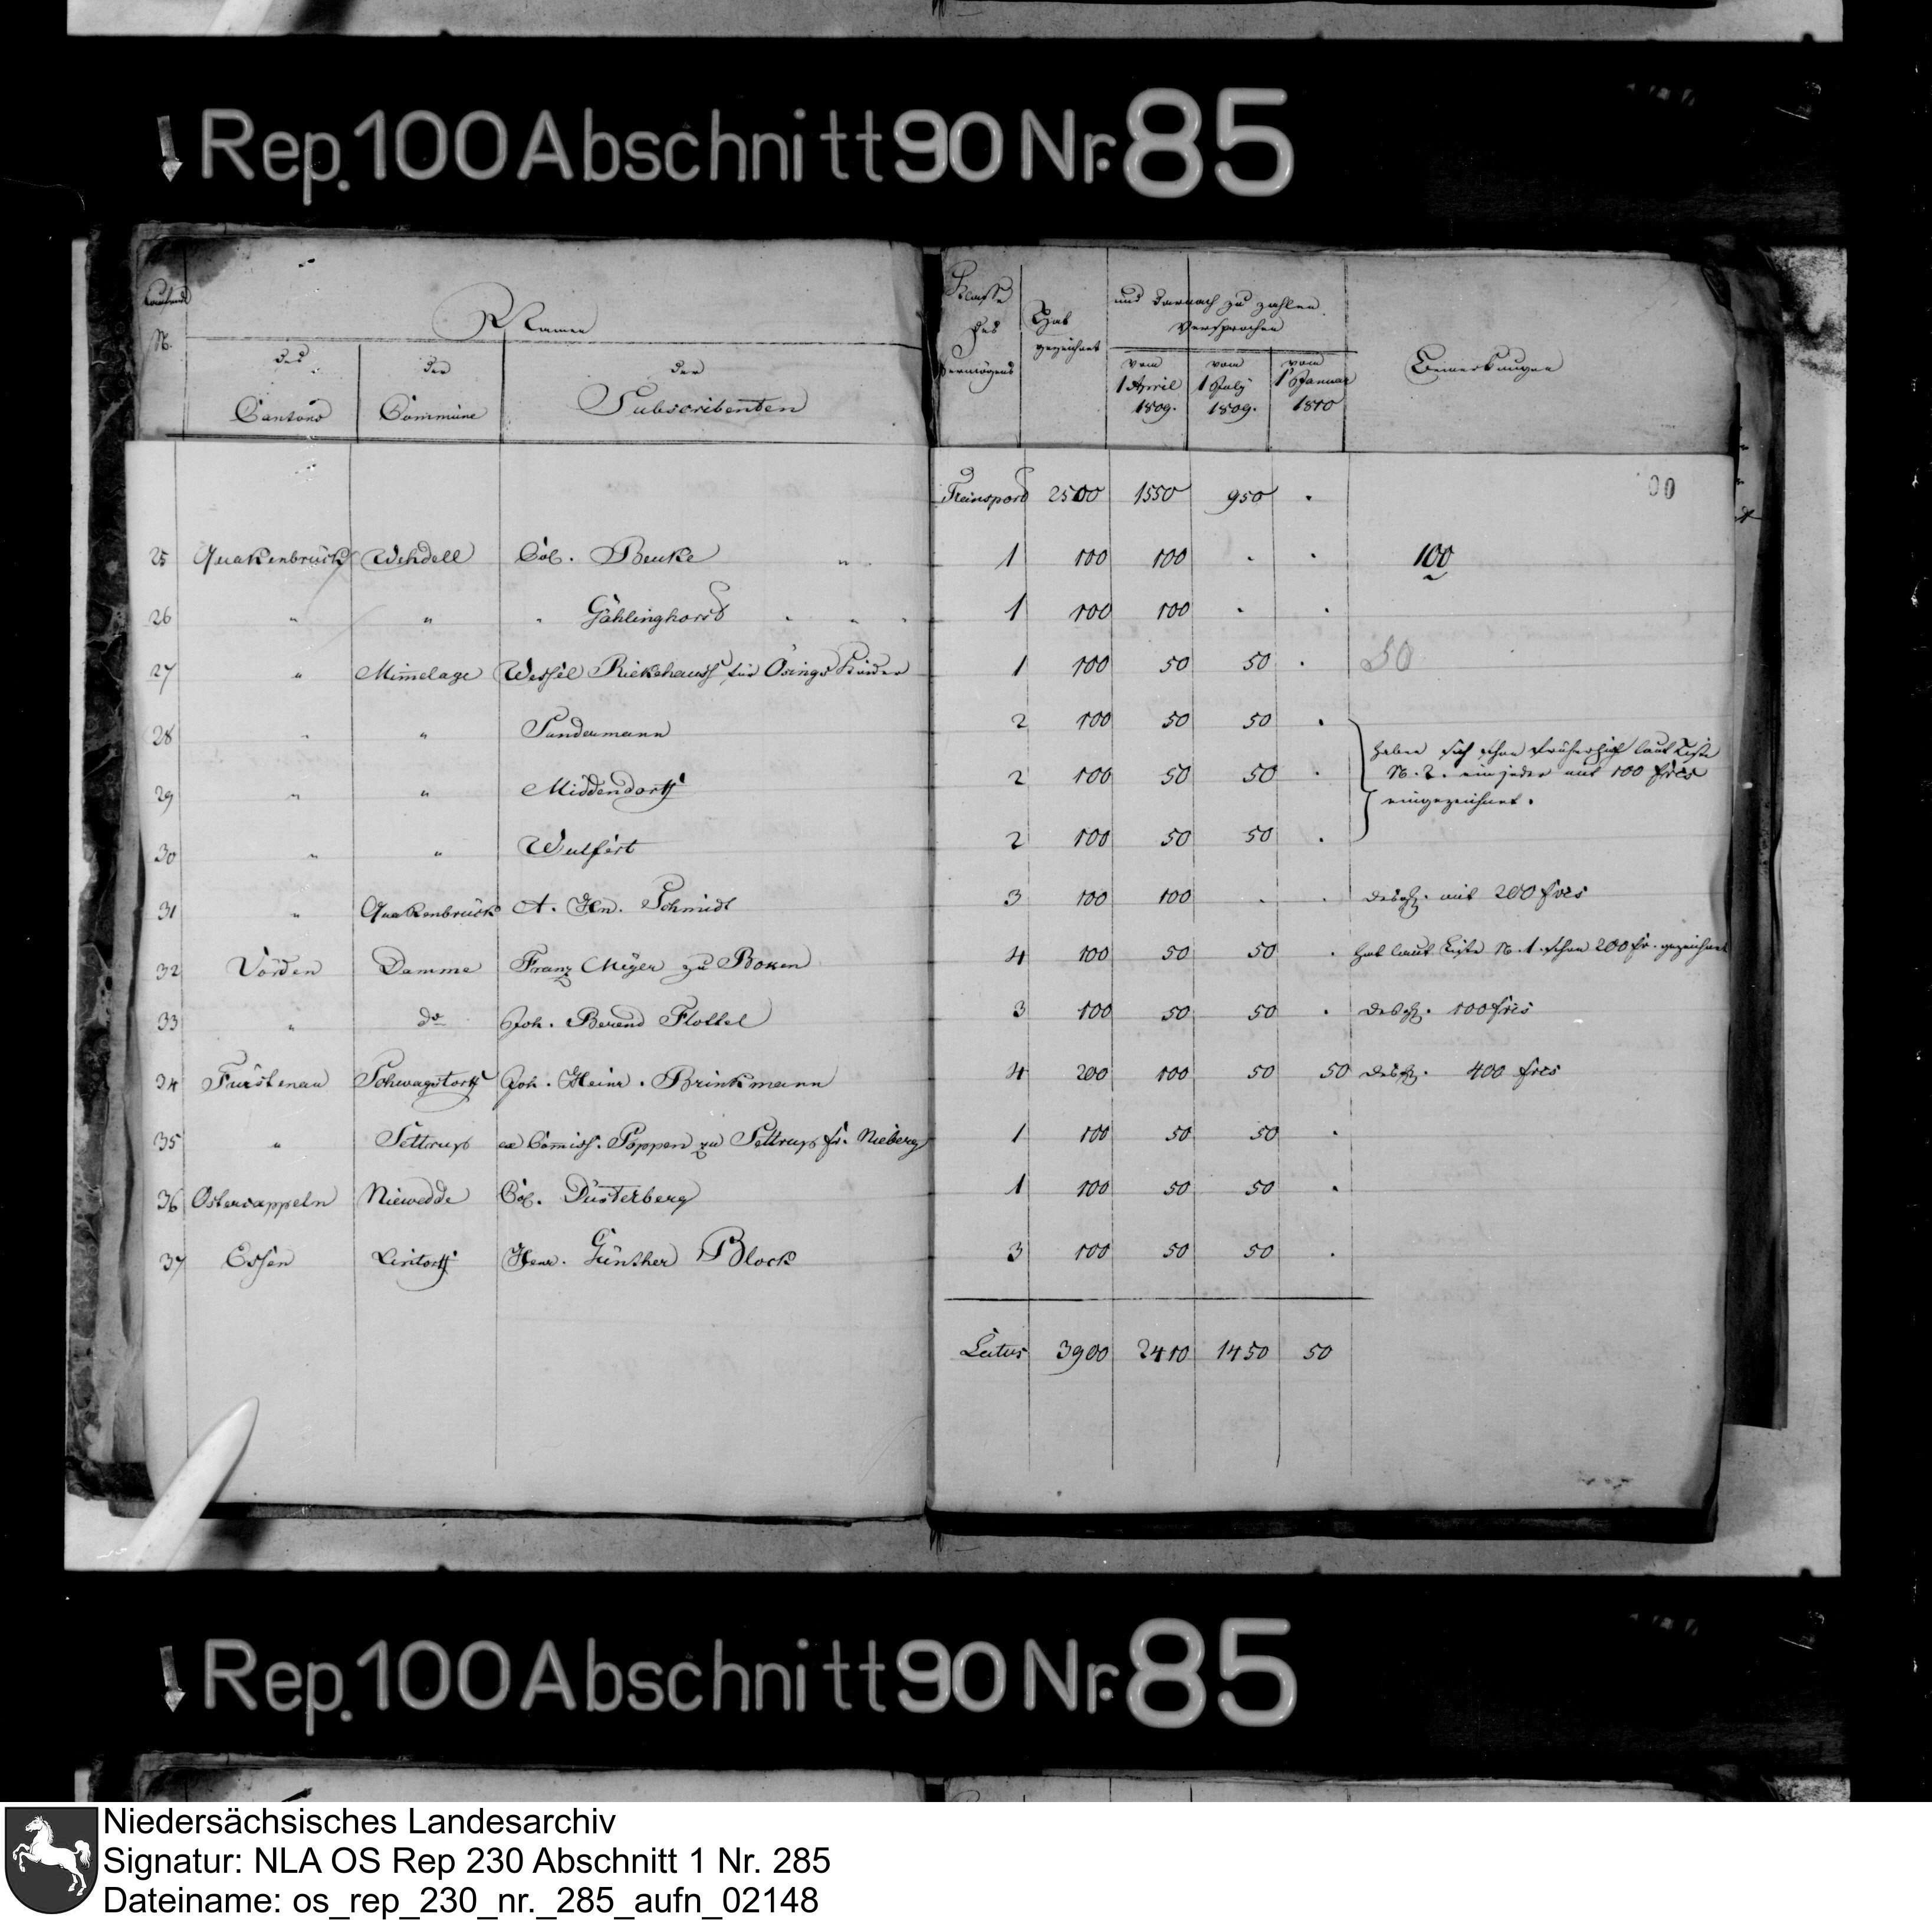 ↓ Rep. 100 Abschnitt 90 Nr. 85
Laufende N. Namen Klasse des Vermögens Hat gezeichnet und darnach zu zahlen versprochen Bemerkungen
des Cantons der Commüne der Subscribenten vom 1 April 1809. vom 1 July 1809. vom 1 Januar 1810
Transport 2500 1550 950 .
25 Quakenbrück Wehdell Col. Beuke " 1 100 100 . . 100
26 " " " Gählinghorst " " " 1 100 100 . .
27 " Mimelage Wessel Riekehaus für Ösings Kinder 1 100 50 50 . 50
28 " " Sandermann 2 100 50 50 .
29 " " Middendorff 2 100 50 50 .
haben sich schon früherhin laut Liste
N. 2. ein jeder mit 100 frcs
eingezeichnet.
30 " " Wulfert 2 100 50 50 .
31 " Quakenbrück A. Hn. Schmidt 3 100 100 . . desgl. mit 200 frcs
32 Vörden Damme Franz Meyer zu Boken 4 100 50 50 . hat laut Liste N. 1. schon 200 fr. gezeichnet
33 " do Joh. Berend Flottel 3 100 50 50 . desgl. 100 frcs
34 Fürstenau Schwagstorff Joh. Heinr. Brinkmann 4 200 100 50 50 desgl. 400 frcs
35 " Settrup ex Comiss. Poppen zu Settrup fr. Nieberg 1 100 50 50 .
36 Ostercappeln Niewedde Col. Düsterberg 1 100 50 50 .
37 Essen Lintorff Henr. Günther Block 3 100 50 50 .
Latus 3900 2410 1450 50
↓ Rep. 100 Abschnitt 90 Nr. 85
Niedersächsisches Landesarchiv
Signatur: NLA OS Rep 230 Abschnitt 1 Nr. 285
Dateiname: os_rep_230_nr._285_aufn_02148